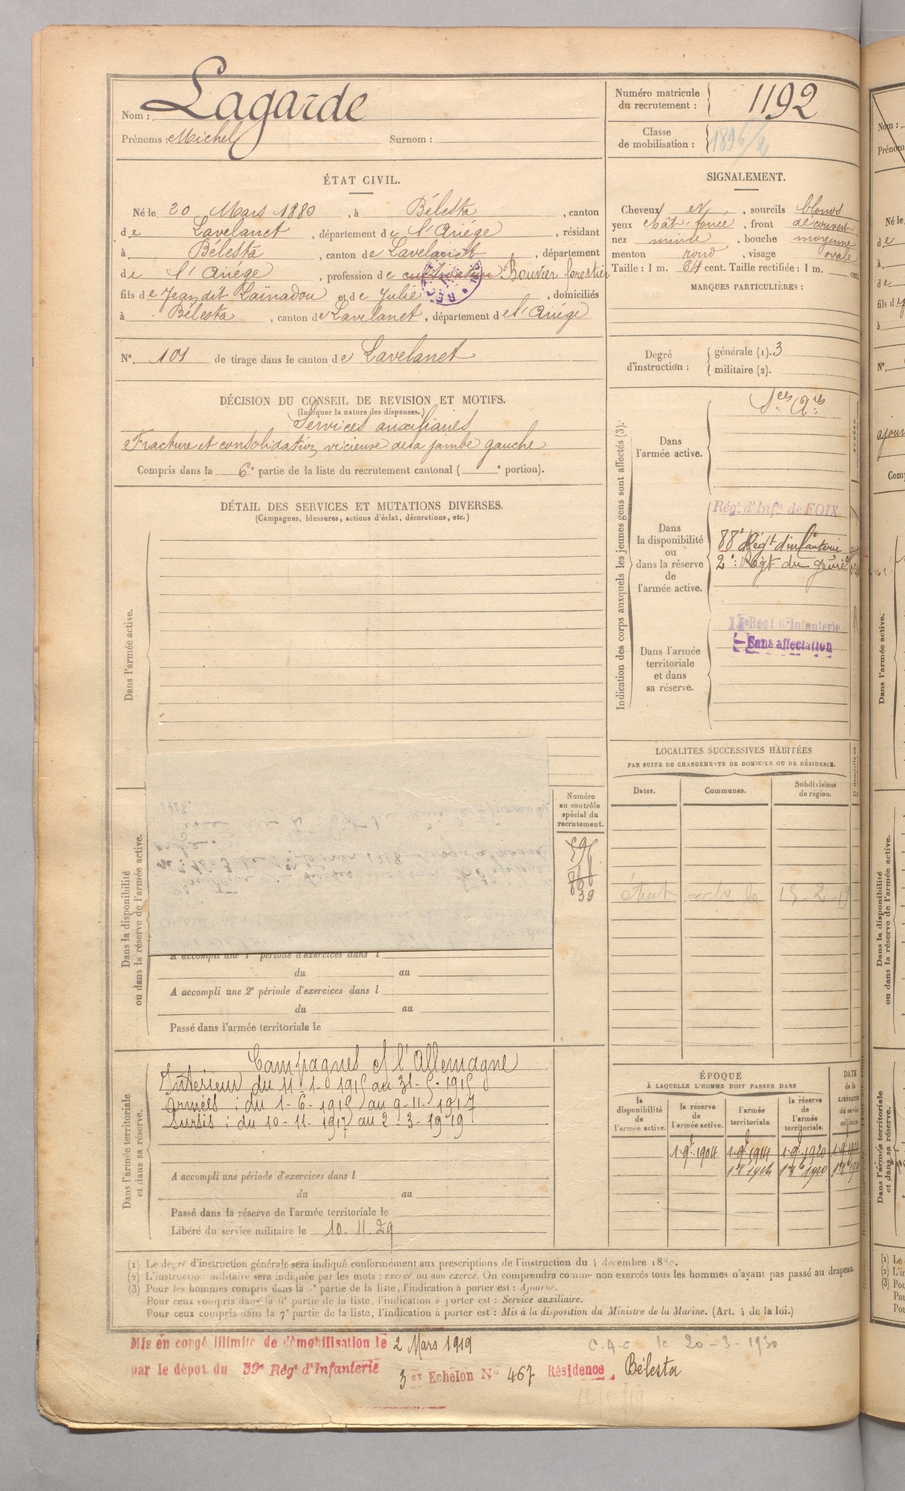 Nom : Lagarde
Prénoms : Michel Surnom :
Numéro matricule du recrutement : 1192
Classe de mobilisation : 1896/2
ÉTAT CIVIL.
Né le 20 Mars 1880, à Bélesta, canton
de Lavelanet, département de l'Ariège, résidant
à Bélesta, canton de Lavelanet, département
de l'Ariège, profession de cultivateur Bouvier forestier
fils de Jean dit Laïnadou et de Julie, domiciliés
à Bélesta, canton de Lavelanet, département de l'Ariège
N° 101 de tirage dans le canton de Lavelanet
SIGNALEMENT.
Cheveux et, sourcils blonds
yeux chât. foncé, front découvert
nez mince, bouche moyenne
menton rond, visage ovale
Taille : 1 m. 64 cent. Taille rectifiée : 1 m. cent.
MARQUES PARTICULIÈRES :
Degré d'instruction :
générale (1). 3
militaire (2).
DÉCISION DU CONSEIL DE REVISION ET MOTIFS.
(Indiquer la nature des dispenses.)
Services auxiliaires
Fracture et consolidation vicieuse de la jambe gauche
Compris dans la 6e partie de la liste du recrutement cantonal ( e portion).
DÉTAIL DES SERVICES ET MUTATIONS DIVERSES.
(Campagnes, blessures, actions d'éclat, décorations, etc.)
Dans l'armée active.
Indication des corps auxquels les jeunes gens sont affectés (3).
Dans l'armée active.
Sces Ares
Dans la disponibilité ou dans la réserve de l'armée active.
Rég. d'Inf. de FOIX
88e Régt d'infanterie
2e Régt du génie
Dans l'armée territoriale et dans sa réserve.
Régt d'Infanterie
Sans affectation
LOCALITES SUCCESSIVES HABITÉES
PAR SUITE DE CHANGEMENTS DE DOMICILE OU DE RÉSIDENCE.
Dates. Communes. Subdivisions de région.
Dans la disponibilité ou dans la réserve de l'armée active.
Numéro au contrôle spécial du recrutement.
39
A accompli une 1re période d'exercices dans l
du au
A accompli une 2e période d'exercices dans l
du au
Passé dans l'armée territoriale le
Dans l'armée territoriale et dans sa réserve.
Campagnes et l'Allemagne
Intérieur du 11-1-1915 au 31-5-1915
Armées : du 1-6-1915 au 9-11-1917
Sursis : du 10-11-1917 au 2-3-1919
A accompli une période d'exercices dans l
du au
Passé dans la réserve de l'armée territoriale le
Libéré du service militaire le 10.11.29
ÉPOQUE
À LAQUELLE L'HOMME DOIT PASSER DANS
la disponibilité de l'armée active.
la réserve de l'armée active.
l'armée territoriale.
la réserve de l'armée territoriale.
1 9e 1904 1 9e 1914 1 9e 1920
(1) Le degré d'instruction générale sera indiqué conformément aux prescriptions de l'instruction du 4 décembre 1889.
(2) L'instruction militaire sera indiquée par les mots : exercé ou non exercé. On comprendra comme non exercés tous les hommes n'ayant pas passé au drapeau.
(3) Pour les hommes compris dans la 5e partie de la liste, l'indication à porter est : Ajourné.
Pour ceux compris dans la 6e partie de la liste, l'indication à porter est : Service auxiliaire.
Pour ceux compris dans la 7e partie de la liste, l'indication à porter est : Mis à la disposition du Ministre de la Marine. (Art. 4 de la loi.)
Mis en congé illimité de démobilisation le 2 Mars 1919
C.A.C. le 20-3-1930
par le dépôt du 59e Rég. d'Infanterie
3er Echelon N° 467 Résidence Bélesta